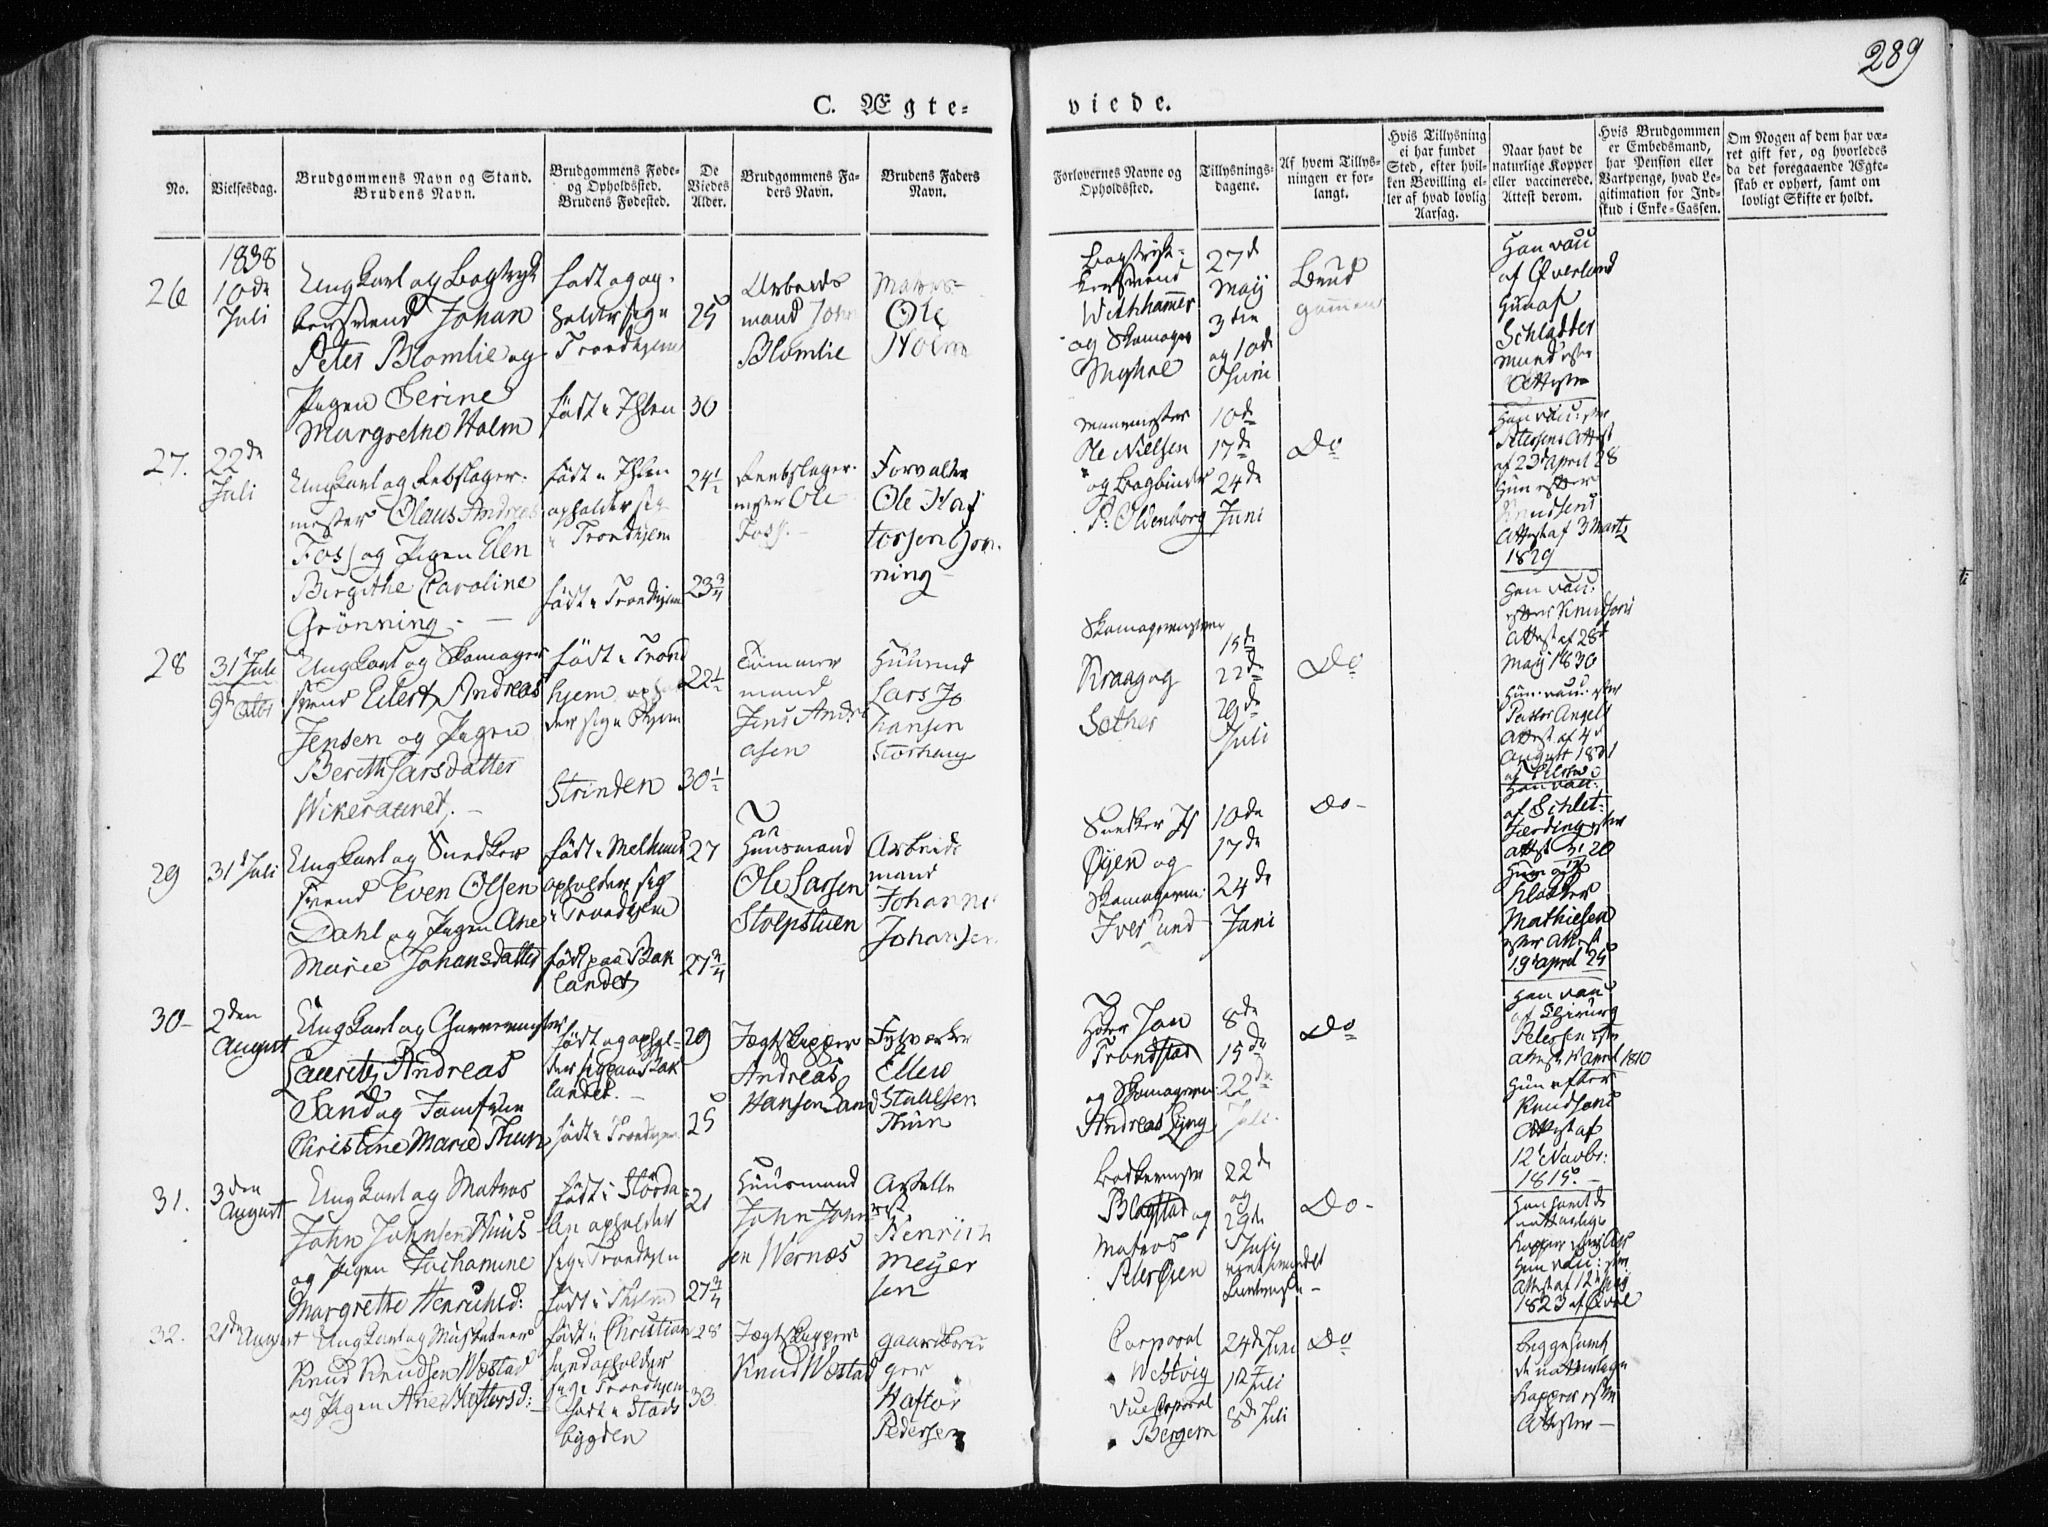 289
C. Ægte-
viede.
No.
Vielsesdag.
Brudgommens Navn og Stand.
Brudens Navn.
Brudgommens Føde-
og Opholdssted.
Brudens Fødested.
De
Viedes
Alder.
Brudgommens Fa-
ders Navn.
Brudens Faders
Navn.
Forlovernes Navne og
Opholdssted.
Tillysnings-
dagene.
Af hvem Tillys-
ningen er for-
langt.
Hvis Tillysning
ei har fundet
Sted, efter hvil-
ken Bevilling el-
ler af hvad lovlig
Aarsag.
Naar havt de
naturlige Kopper
eller vaccinerede.
Attest derom.
Hvis Brudgommen
er Embedsmand,
har Pension eller
Vartpenge, hvad Le-
gitimation for Ind-
skud i Enke-Cassen.
Om Nogen af dem har væ-
ret gift før, og hvorledes
da det foregaaende Ægte-
skab er ophørt, samt om
lovligt Skifte er holdt.
1838
26
10de
Juli
Ungkarl og Bogtryk
kersvend Johan
Peter Blomlie og
Pigen Serine
Margrethe Holm
født og op-
holder sig i
Trondhjem
født i Ihlen
25
30
Arbeids
mand John
Blomlie
Matros
Ole
Holm
Bogtryk-
kersvend
Withhammer
og Skomager
Myhre
27de
May
3die
og 10de
Juni
Brud
gommen
Han vacc
af Qverlund
Hun af
Schlødter
Attester
27.
22de
Juli
Ungkarl og Rebslager-
mester Olaus Andreas
Foss og Pigen Elen
Birgithe Caroline
Grønning. -
født i Ihlen
opholder sig
i Trondhjem
født i Trondhjem
24½
23¾
Reebslager-
mester Ole
Foss. -
Forvalter
Ole Haf
torsen Grøn-
ning -
Ole Nielsen
og Bogbinder
P. Oldenborg
10de
17de
24de
Juni
Do
Han vacc: efter
Petersens Attest
af 23d April 28
Hun efter
Knudsens
Attest af 3 Martz
1829
28
31t Juli
9de Octbr
Ungkarl og Skomager
svend Eilert Andreas
Jensen og Pigen
Bereth Larsdatter
Wikeraunet. -
født i Trond
hjem ophol
der sig i Thjem
Strinden
22½
30½
Tømmer
mand
Jens Andre
asen
Huusmand
Lars Jo
hansen
Storhaug
Skomagermester
Kraag og
Sæther
15de
22de
29de
Juli
Do
Han vacc:
efter Knudsons
Attest af 28d
May 1830
Hun vacc. efter
Pastor Angells
Attest af 4d
August 18
29
31t Juli
Ungkarl og Snedker
svend Even Olsen
Dahl og Pigen Ane
Marie Johansdatter
født i Melhuus
opholder sig
i Trondhjem
født paa Bak
landet
27
27¾
Huusmand
Ole Larsen
Stolpstuen
Arbeids
mand
Johannes
Johansen
Snedker
Øyen og
Skomagerm:
Iver Lund
10de
17de
24de
Juni
Do -
Han vacc:
af Schlet:
Jerding efter
Attest
Hun af
Klokker
Mathiesen
efter Attest
19 April 25
30 -
2den
August
Ungkarl og Garvermester
Lauritz Andreas
Sand og Jomfrue
Christine Marie Thun
født og ophol-
der sig paa Bak
landet. -
født i Trondhjem
29
25
Jægtskipper
Andreas
Hansen Sand
Fyrværker
Ellew
Stallesen
Thun
Jon
Trondstad
og Skomagerm:
Andreas Lyng
8de
15de
22de
Juli.
Do
Han vacc
af Chirurg
Petersen efter
Attest April 1810
Hun efter
Knudsons
Attest af
12t Novbr:
1815. -
31.
3den
August
Ungkarl og Matros
John Johnsen Huus
og Pigen Jochamine
Margrethe Henrichsd:
født i Størda
len opholder
sig i Trondhjem
født i Ihlen
21
27¾
Huusmand
John John
sen Wernæs
Artille
rist
Henrich
Meyer
sen
Bødkermester
Blogstad og
Matros
Peter Øien
22de
og
29de
Juli
Do -
Han havt de
naturlige
Kopper
Hun vacc: efter
Attest af 12t May
1823 af Qvale
32.
21de August
Ungkarl og Musketeer
Knud Knudsen Wæstad
og Pigen Ane Haftorsd: -
født i Christian
sund opholder
sig i Trondhjem
født i Stads
bygden
28
33
Jægtskipper
Knud Wæstad
Gaardbru
ger
Haftor
Pedersen
Corporal
Westvig
Vice Corporal
Bergem
24de Juni
1t Juli
8de Juli
Do
Begge havt
de naturlige
Kopper efter
Attester -